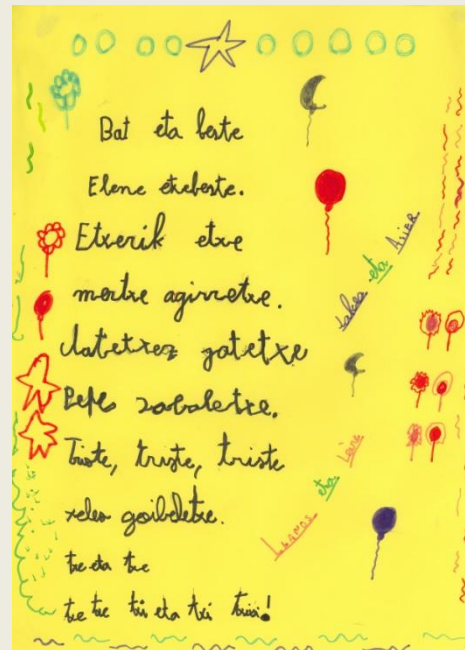 Bat eta beste
Elene etxebeste.
Etxerik etxe
mertxe agirretxe.
Jatetxez jatetxe
Pepe zabaletxe.
Triste, triste, triste
xeles goibeletxe.
txe eta txe
txe txe txi eta txi txixi!
eta Aier
eta